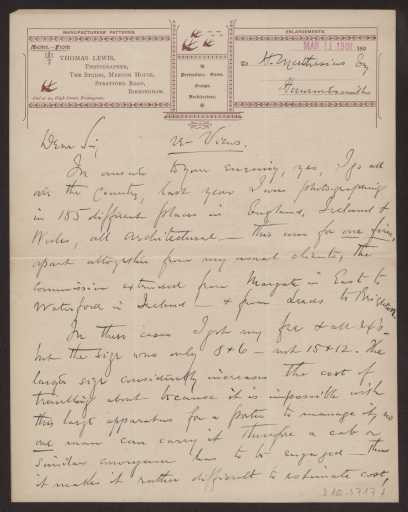 MANUFACTURERS' PATTERNS.
ENLARGEMENTS.
MAR 11 1901 190
THOMAS LEWIS,
PHOTOGRAPHER,
THE STUDIO, MERTON HOUSE,
STRATFORD ROAD,
BIRMINGHAM.
Portraiture, Views,
Groups,
Architecture,
to H. Muthesius Esq
Hammersmith
Dear Sir,
re Views.
In answer to your enquiry, yes, I go all
over the Country, last year I was photographing
in 185 different places in England, Ireland &
Wales, all architectural — this was for one firm,
apart altogether from my usual clients, the
commission extended from Margate in East to
Waterford in Ireland — & from Leeds to Brighton
In these cases I got my fee & all
but the size was only 8 × 6 — not 15 × 12. The
larger size considerably increases the cost of
travelling about because it is impossible with
this large apparatus for a porter to manage it, no
one man can carry it therefore a cab or
similar conveyance has to be engaged — thus
it makes it rather difficult to estimate cost,